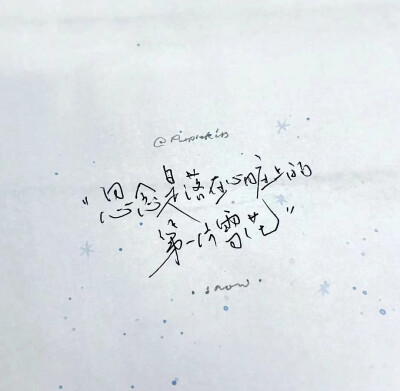 "思念是落在心脏上的
第一片雪花"
· snow ·